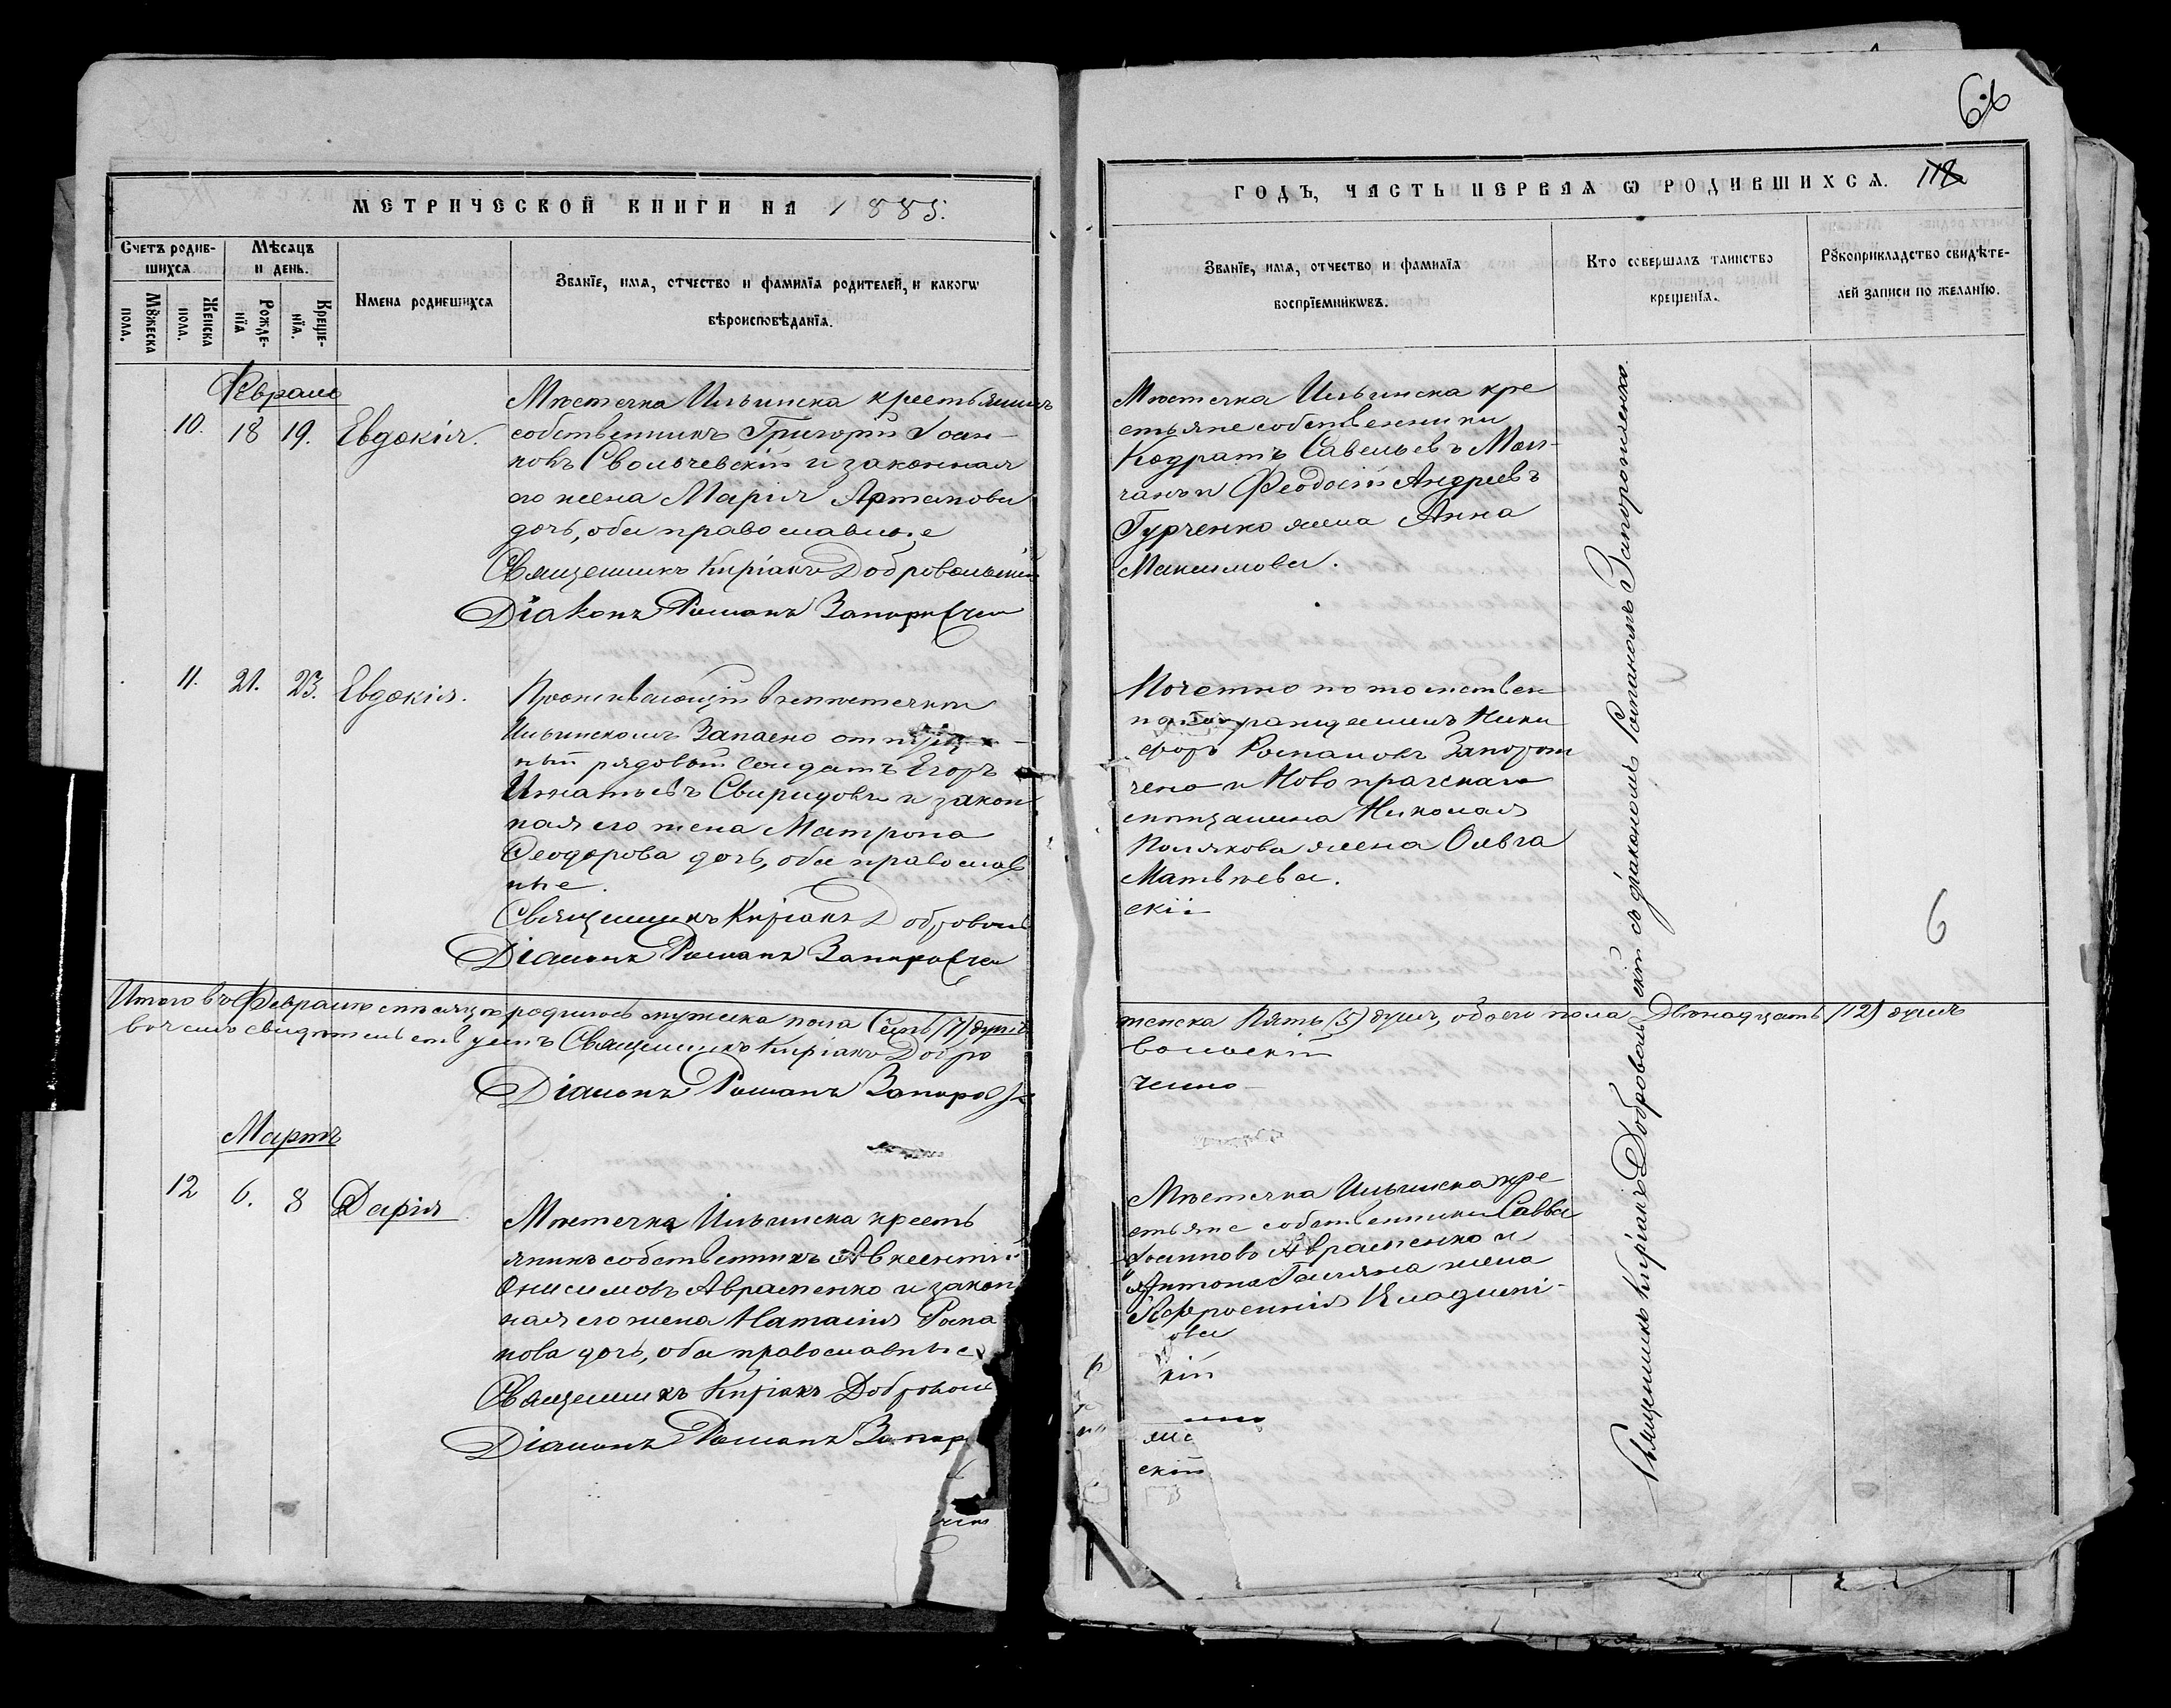 МЕТРИЧЕСКОЙ КНИГИ НА 1885.
Счетъ родив-
шихся.
Мѣсяцъ
и день.
Мꙋжеска
пола.
Женска
пола.
Рожде-
нїя
Креще-
нїя.
Имена родившихся
Званїе, имя, отчество и фамилїя родителей, и какогѡ
вѣроисповѣданїя.
Февраль
10. 18 19. Евдокія.
Мѣстечка Ильинска крестьянинъ
собственникъ Григорій Іоан-
новъ и законная
его жена Марія Артемова
дочь, оба православные
Священникъ Киріакъ Добровольскій
Діаконъ Романъ
11. 21. 23. Евдокія.
Проживающій въ мѣстечкѣ
Ильинскомъ Запасно отпуск-
ный рядовый Солдатъ Егоръ
Игнатьевъ Свиридовъ и закон
ная его жена Матрона
Ѳеодорова дочь, оба православ
ные.
Священникъ Киріакъ Добровол
Діаконъ Романъ
Итого въ Февралѣ мѣсяцѣ родилось мужеска пола Семь (7) душъ
въ чемъ свидѣтельствуемъ Священникъ Киріакъ Добро
Діаконъ Романъ
Мартъ
12 6. 8 Дарія
Мѣстечка Ильинска кресть
янинъ собственникъ Авксентій
Онисимовъ Авраменко и закон
ная его жена Наталія Рома
нова дочь, оба православные
Священникъ Киріакъ Доброволь
Діаконъ Романъ Запор
66
ГОДЪ, ЧАСТЬ ПЕРВАЯ Ѡ РОДИВШИХСЯ. 118
Званїе, имя, отчество и фамилїя
воспрїемникѡвъ.
Кто совершалъ таинство
крещенїя.
Рꙋкоприкладство свидѣте-
лей записи по желанїю.
Мѣстечка Ильинска кре
стьяне собственники
Кодратъ Савельевъ Мол-
чанъ и Феодосій Андреевъ
Гурченко жена Анна
Максимова.
Почетно потомствен
но гражданинъ Ники
форъ Романовъ Запорож
ченко и Новопражская
мѣщанина Николая
Полякова жена Ольга
Матвѣева.
скій
женска Пять (5) душъ, обоего пола Двѣнадцать (12) душъ
вольскій
ченко
Мѣстечка Ильинска кре
стьяне собственники Савва
Іосиповъ Авраменко и
Антона жена
Евфросинія
ова
кій
скій
Священникъ Киріакъ Добровольскій съ діакономъ Романомъ
6